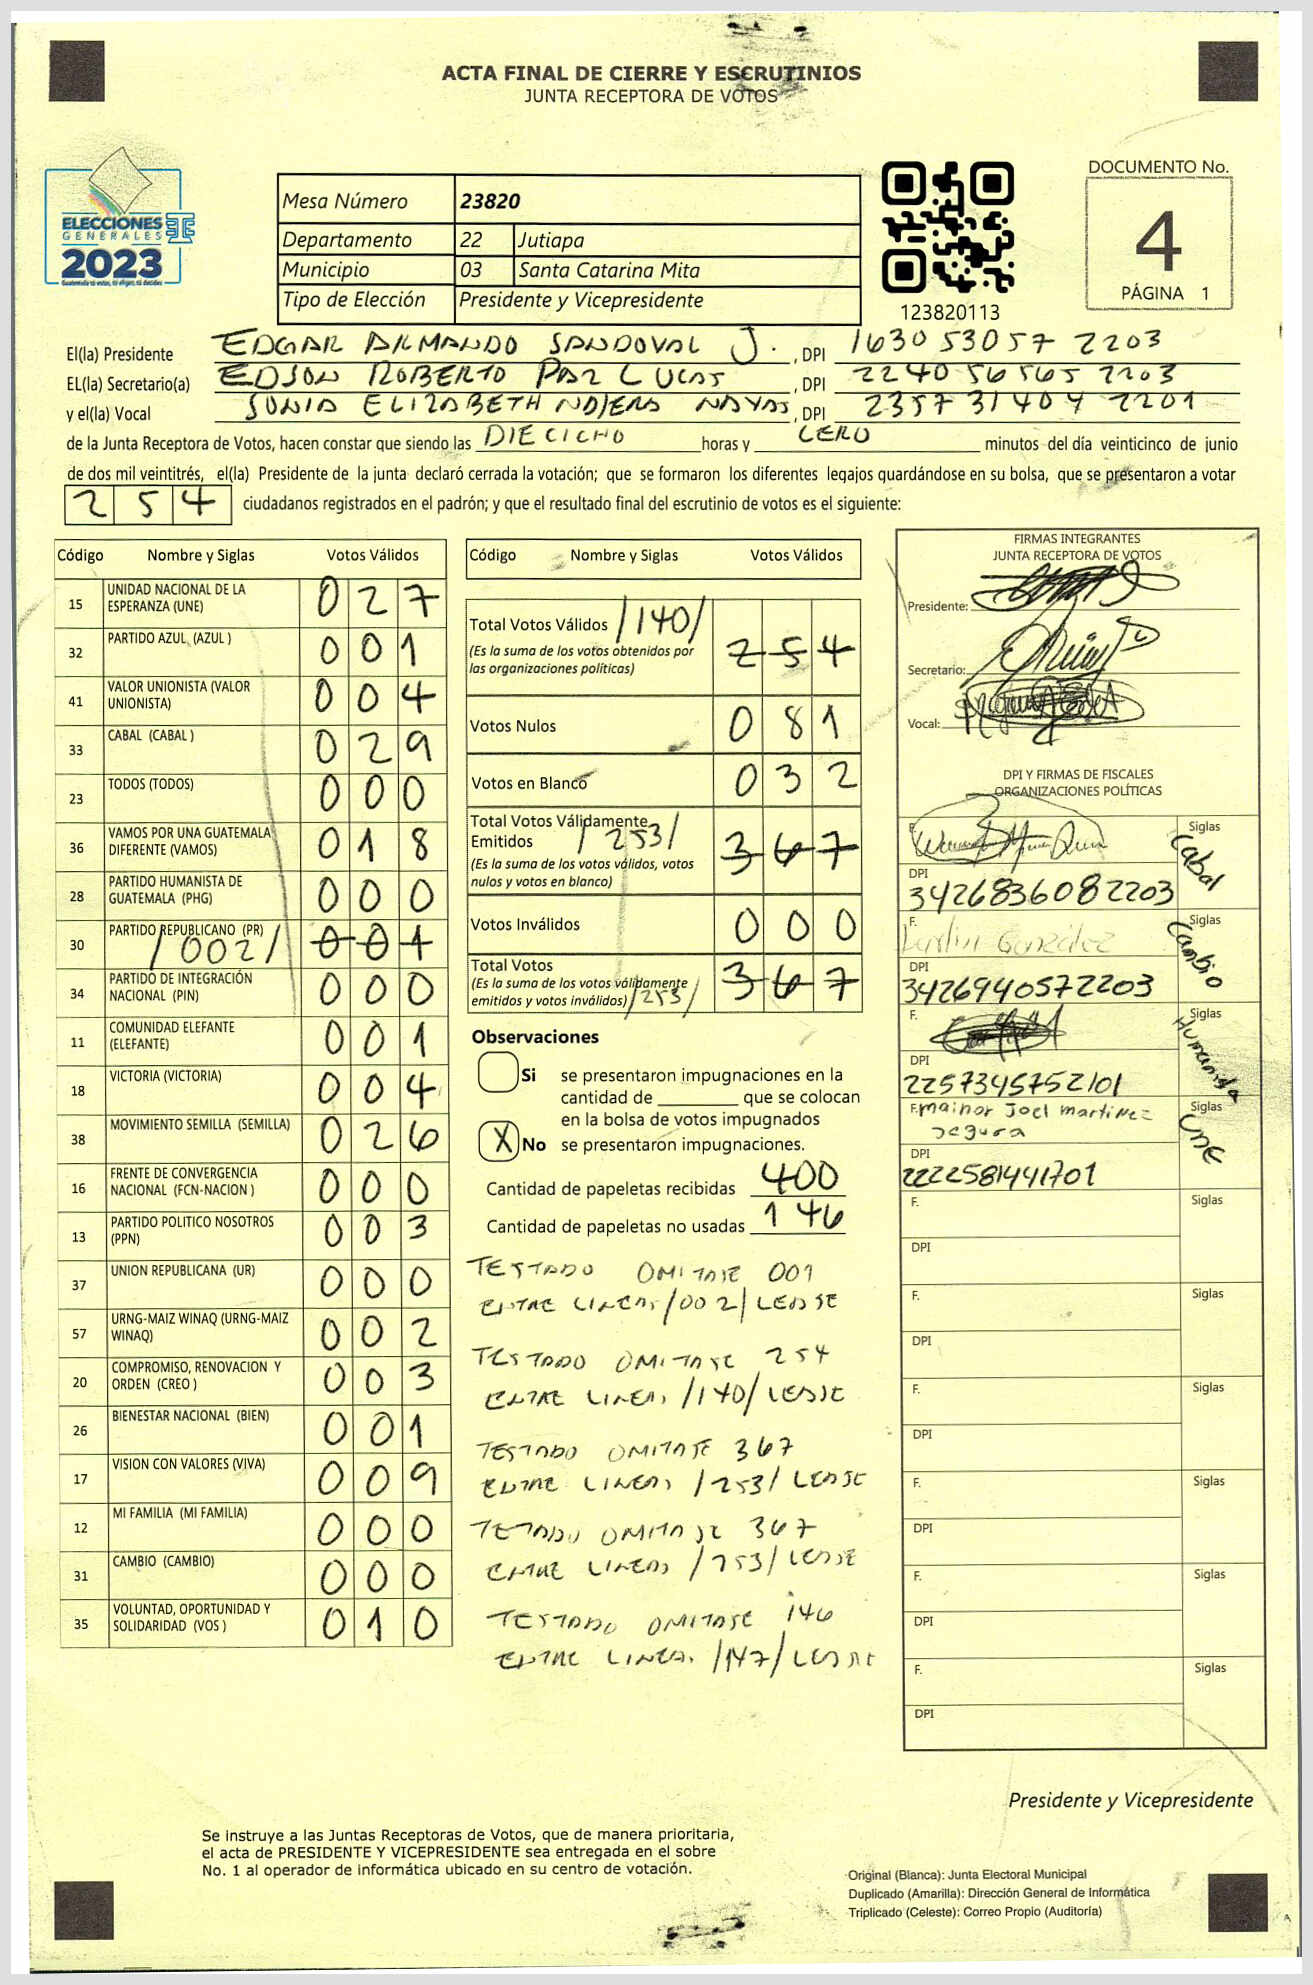 ACTA FINAL DE CIERRE Y ESCRUTINIOS
JUNTA RECEPTORA DE VOTOS
ELECCIONES
GENERALES
2023
Mesa Número 23820
Departamento 22 Jutiapa
Municipio 03 Santa Catarina Mita
Tipo de Elección Presidente y Vicepresidente
123820113
DOCUMENTO No.
4
PÁGINA 1
El(la) Presidente EDGAR ARMANDO SANDOVAL J. , DPI 1630 53057 2203
EL(la) Secretario(a) EDSON ROBERTO PAZ LUCAS , DPI 2240 56565 2203
y el(la) Vocal SONIA ELIZABETH NAJERA NAVAS , DPI 2357 31404 2201
de la Junta Receptora de Votos, hacen constar que siendo las DIECICHO horas y CERO minutos del día veinticinco de junio
de dos mil veintitrés, el(la) Presidente de la junta declaró cerrada la votación; que se formaron los diferentes legajos guardándose en su bolsa, que se presentaron a votar
254 ciudadanos registrados en el padrón; y que el resultado final del escrutinio de votos es el siguiente:
Código Nombre y Siglas Votos Válidos
15 UNIDAD NACIONAL DE LA ESPERANZA (UNE) 027
32 PARTIDO AZUL (AZUL ) 001
41 VALOR UNIONISTA (VALOR UNIONISTA) 004
33 CABAL (CABAL ) 029
23 TODOS (TODOS) 000
36 VAMOS POR UNA GUATEMALA DIFERENTE (VAMOS) 018
28 PARTIDO HUMANISTA DE GUATEMALA (PHG) 000
30 PARTIDO REPUBLICANO (PR) /002/ 001
34 PARTIDO DE INTEGRACIÓN NACIONAL (PIN) 000
11 COMUNIDAD ELEFANTE (ELEFANTE) 001
18 VICTORIA (VICTORIA) 004
38 MOVIMIENTO SEMILLA (SEMILLA) 026
16 FRENTE DE CONVERGENCIA NACIONAL (FCN-NACION ) 000
13 PARTIDO POLITICO NOSOTROS (PPN) 003
37 UNION REPUBLICANA (UR) 000
57 URNG-MAIZ WINAQ (URNG-MAIZ WINAQ) 002
20 COMPROMISO, RENOVACION Y ORDEN (CREO ) 003
26 BIENESTAR NACIONAL (BIEN) 001
17 VISION CON VALORES (VIVA) 009
12 MI FAMILIA (MI FAMILIA) 000
31 CAMBIO (CAMBIO) 000
35 VOLUNTAD, OPORTUNIDAD Y SOLIDARIDAD (VOS ) 010
Código Nombre y Siglas Votos Válidos
Total Votos Válidos /140/ 254
(Es la suma de los votos obtenidos por
las organizaciones políticas)
Votos Nulos 081
Votos en Blanco 032
Total Votos Válidamente
Emitidos /253/ 367
(Es la suma de los votos válidos, votos
nulos y votos en blanco)
Votos Inválidos 000
Total Votos 367
(Es la suma de los votos válidamente
emitidos y votos inválidos) /253/
Observaciones
Si se presentaron impugnaciones en la
cantidad de ________ que se colocan
en la bolsa de votos impugnados
X No se presentaron impugnaciones.
Cantidad de papeletas recibidas 400
Cantidad de papeletas no usadas 146
TESTADO OMITASE 001
ENTRE LINEAS /002/ LEASE
TESTADO OMITASE 254
ENTRE LINEAS /140/ LEASE
TESTADO OMITASE 367
ENTRE LINEAS /253/ LEASE
TESTADO OMITASE 367
ENTRE LINEAS /253/ LEASE
TESTADO OMITASE 146
ENTRE LINEAS /147/ LEASE
FIRMAS INTEGRANTES
JUNTA RECEPTORA DE VOTOS
Presidente:
Secretario:
Vocal:
DPI Y FIRMAS DE FISCALES
ORGANIZACIONES POLÍTICAS
F. Siglas Cabal
DPI
3426836082203
F. González Siglas Cambio
DPI
3426940572203
F. Siglas Humanista
DPI
2257345752101
F. mainor Joel martinez Siglas UNE
segura
DPI
2222581441701
F. Siglas
DPI
F. Siglas
DPI
F. Siglas
DPI
F. Siglas
DPI
F. Siglas
DPI
F. Siglas
DPI
Presidente y Vicepresidente
Se instruye a las Juntas Receptoras de Votos, que de manera prioritaria,
el acta de PRESIDENTE Y VICEPRESIDENTE sea entregada en el sobre
No. 1 al operador de informática ubicado en su centro de votación.
Original (Blanca): Junta Electoral Municipal
Duplicado (Amarilla): Dirección General de Informática
Triplicado (Celeste): Correo Propio (Auditoría)